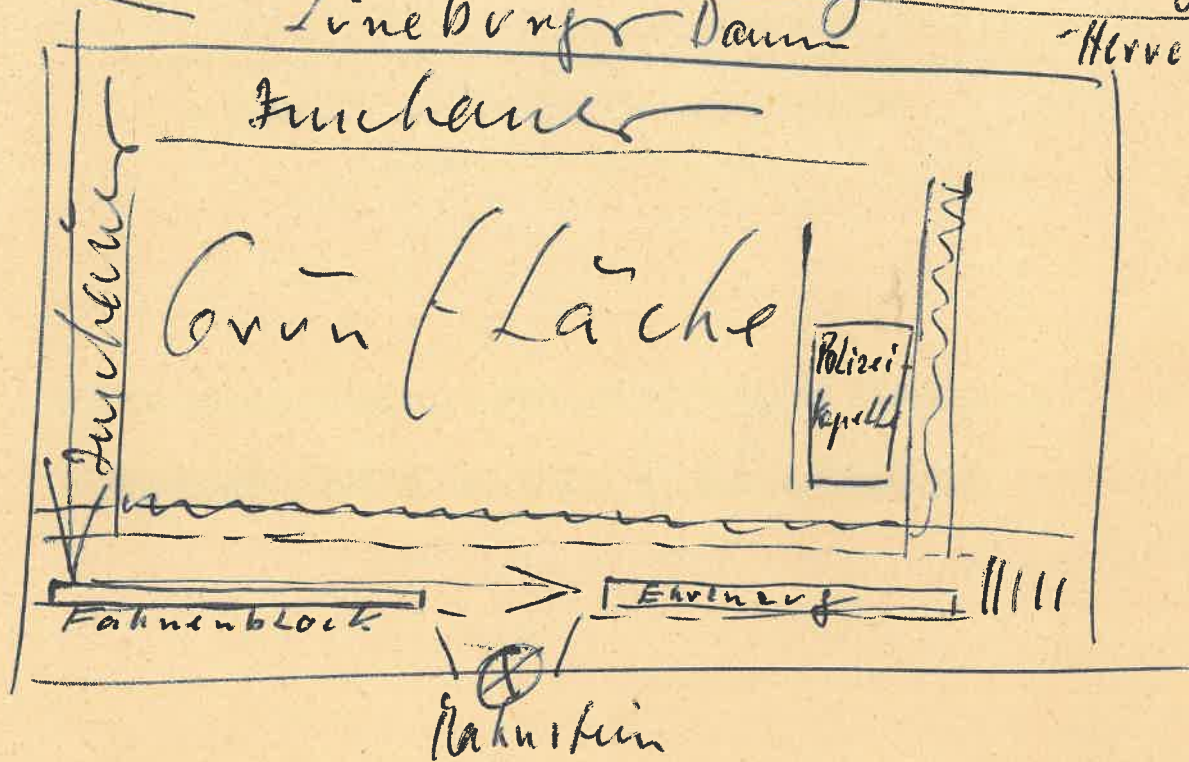 Lüneburger Damm
-Herre
Zuschauer
Zuschauer
Grünfläche
Polizei-
kapelle
Fahnenblock
Ehrenzug
Mahnstein